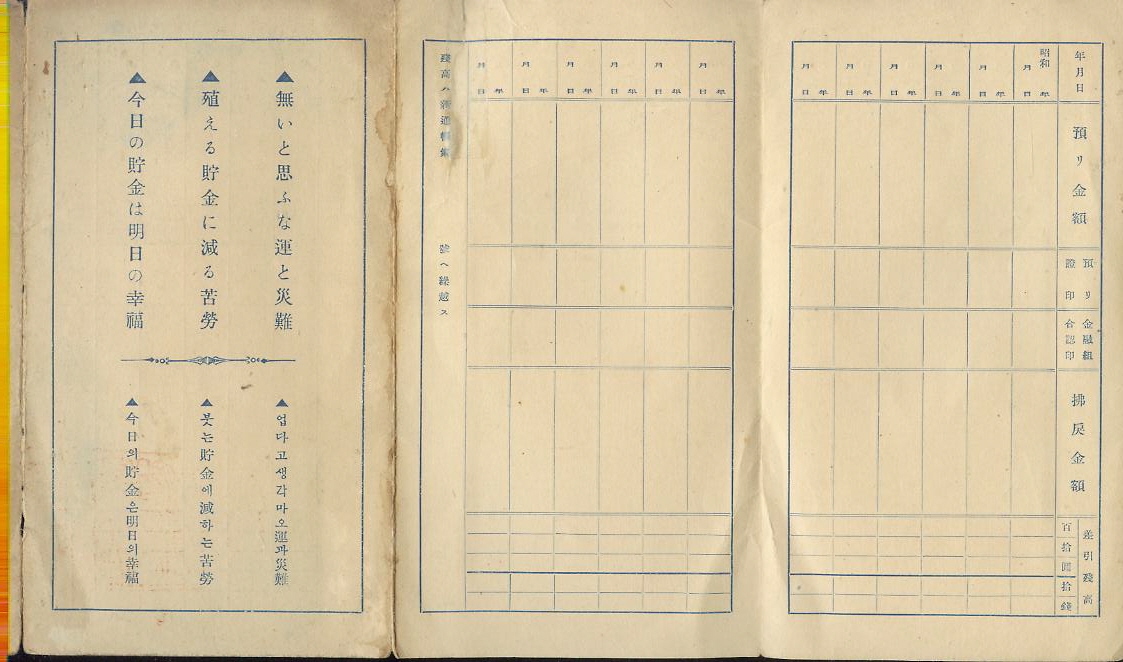 年月日
預リ金額
預リ
證印
金融組
合認印
拂戻金額
差引残高
百拾圓拾錢
昭和 年 月 日
年 月 日
年 月 日
年 月 日
年 月 日
年 月 日
年 月 日
年 月 日
年 月 日
年 月 日
年 月 日
年 月 日
殘高ハ新通帳第 號ヘ繰越ス
▲無いと思ふな運と災難
▲殖える貯金に減る苦勞
▲今日の貯金は明日の幸福
▲업다고생각마오運과災難
▲붓는貯金에減하는苦勞
▲今日의貯金은明日의幸福